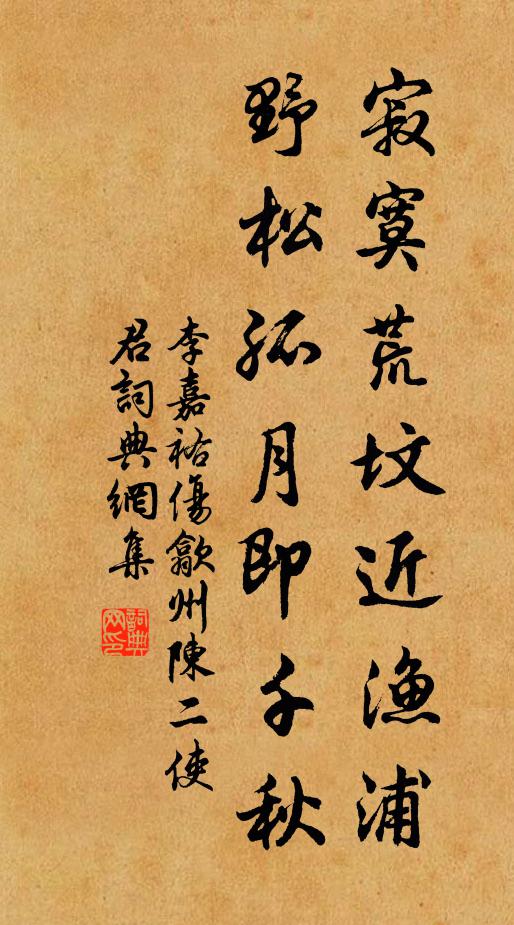 寂寞荒坟近渔浦
野松孤月即千秋
李嘉祐傷歙州陳二使
君詞典網集
詞典
网印